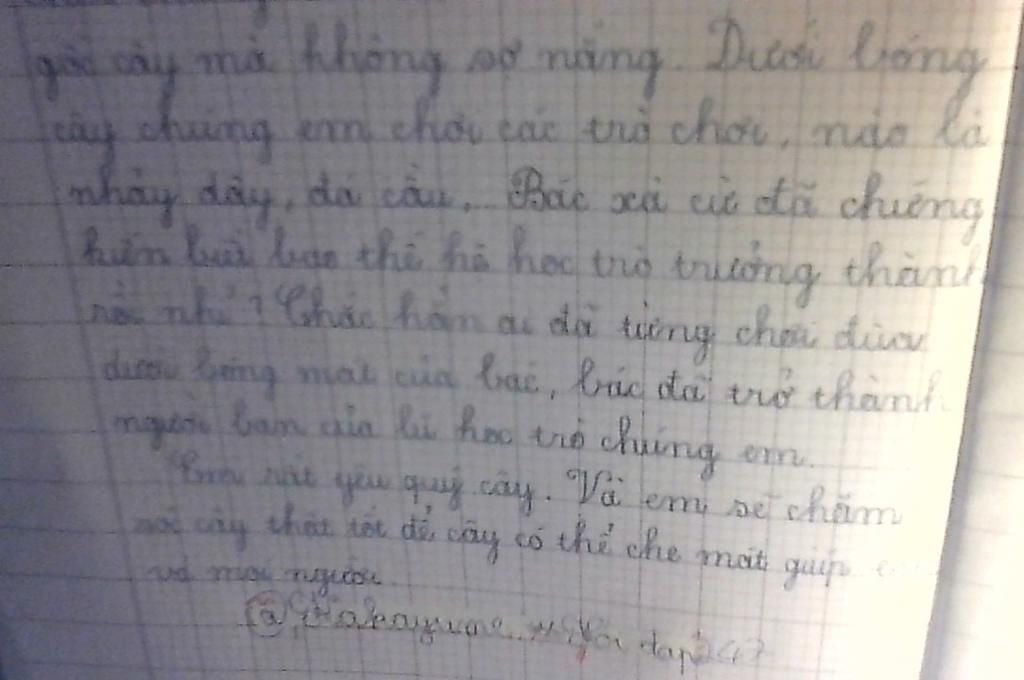 gốc cây mà không sợ nắng. Dưới bóng
cây chúng em chơi các trò chơi, nào là
nhảy dây, đá cầu,... Bác xà cừ đã chứng
kiến bao thế hệ học trò trưởng thành
rồi nhỉ? Chắc hẳn ai đã từng chơi đùa
dưới bóng mát của bác, bác đã trở thành
người bạn của lũ học trò chúng em.
Em rất yêu quý cây. Và em sẽ chăm
sóc cây thật tốt để cây có thể che mát giúp
và mọi người.